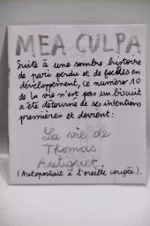 MEA CULPA
Suite à une sombre histoire
de paris perdu et de facultés en
développement, ce numéro 10
de la vie n'est pas un biscuit
a été détourné de ses intentions
premières et devient:
La vie de
Thomas
(Autoportrait à l'oreille coupée).